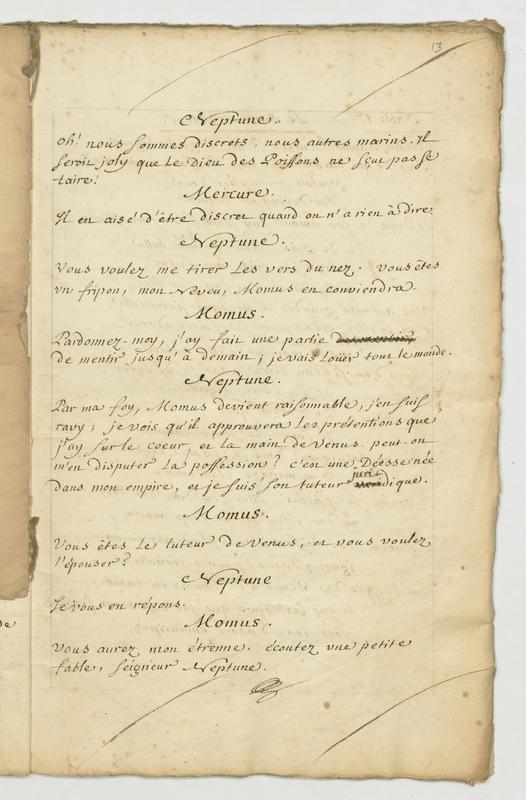 13
Neptune.
Oh! nous sommes discrets, nous autres marins. Il
seroit joly que le Dieu des Poissons ne sçut pas se
taire!
Mercure.
Il en aisé d'être discret quand on n'a rien à dire
Neptune.
Vous voulez me tirer les vers du nez. vous êtes
un fripon, mon Neveu, Momus en conviendra.
Momus.
Pardonnez-moy, j'ay fait une partie
de mentir jusqu'à demain; je vais loüer tout le monde.
Neptune.
Par ma foy, Momus devient raisonnable, j'en suis
ravy; je vois qu'il approuvera les pretentions que
j'ay sur le coeur, et la main de Venus. peut-on
m'en disputer la possession? c'en une Déesse née
dans mon empire, et je suis son tuteur juridique.
Momus.
Vous êtes le tuteur de Venus, et vous voulez
l'épouser?
Neptune
Je vous en répons.
Momus.
Vous aurez mon étrenne. écoutez une petite
fable, seigneur Neptune.